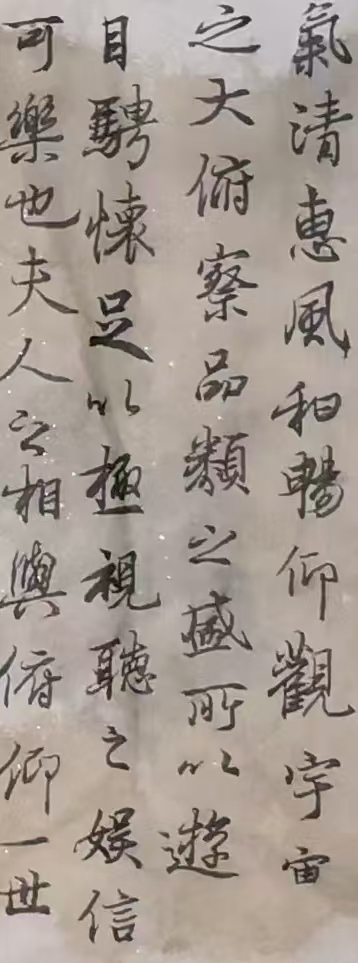 氣清惠風和暢仰觀宇宙
之大俯察品類之盛所以遊
目騁懷足以極視聽之娛信
可樂也夫人之相與俯仰一世